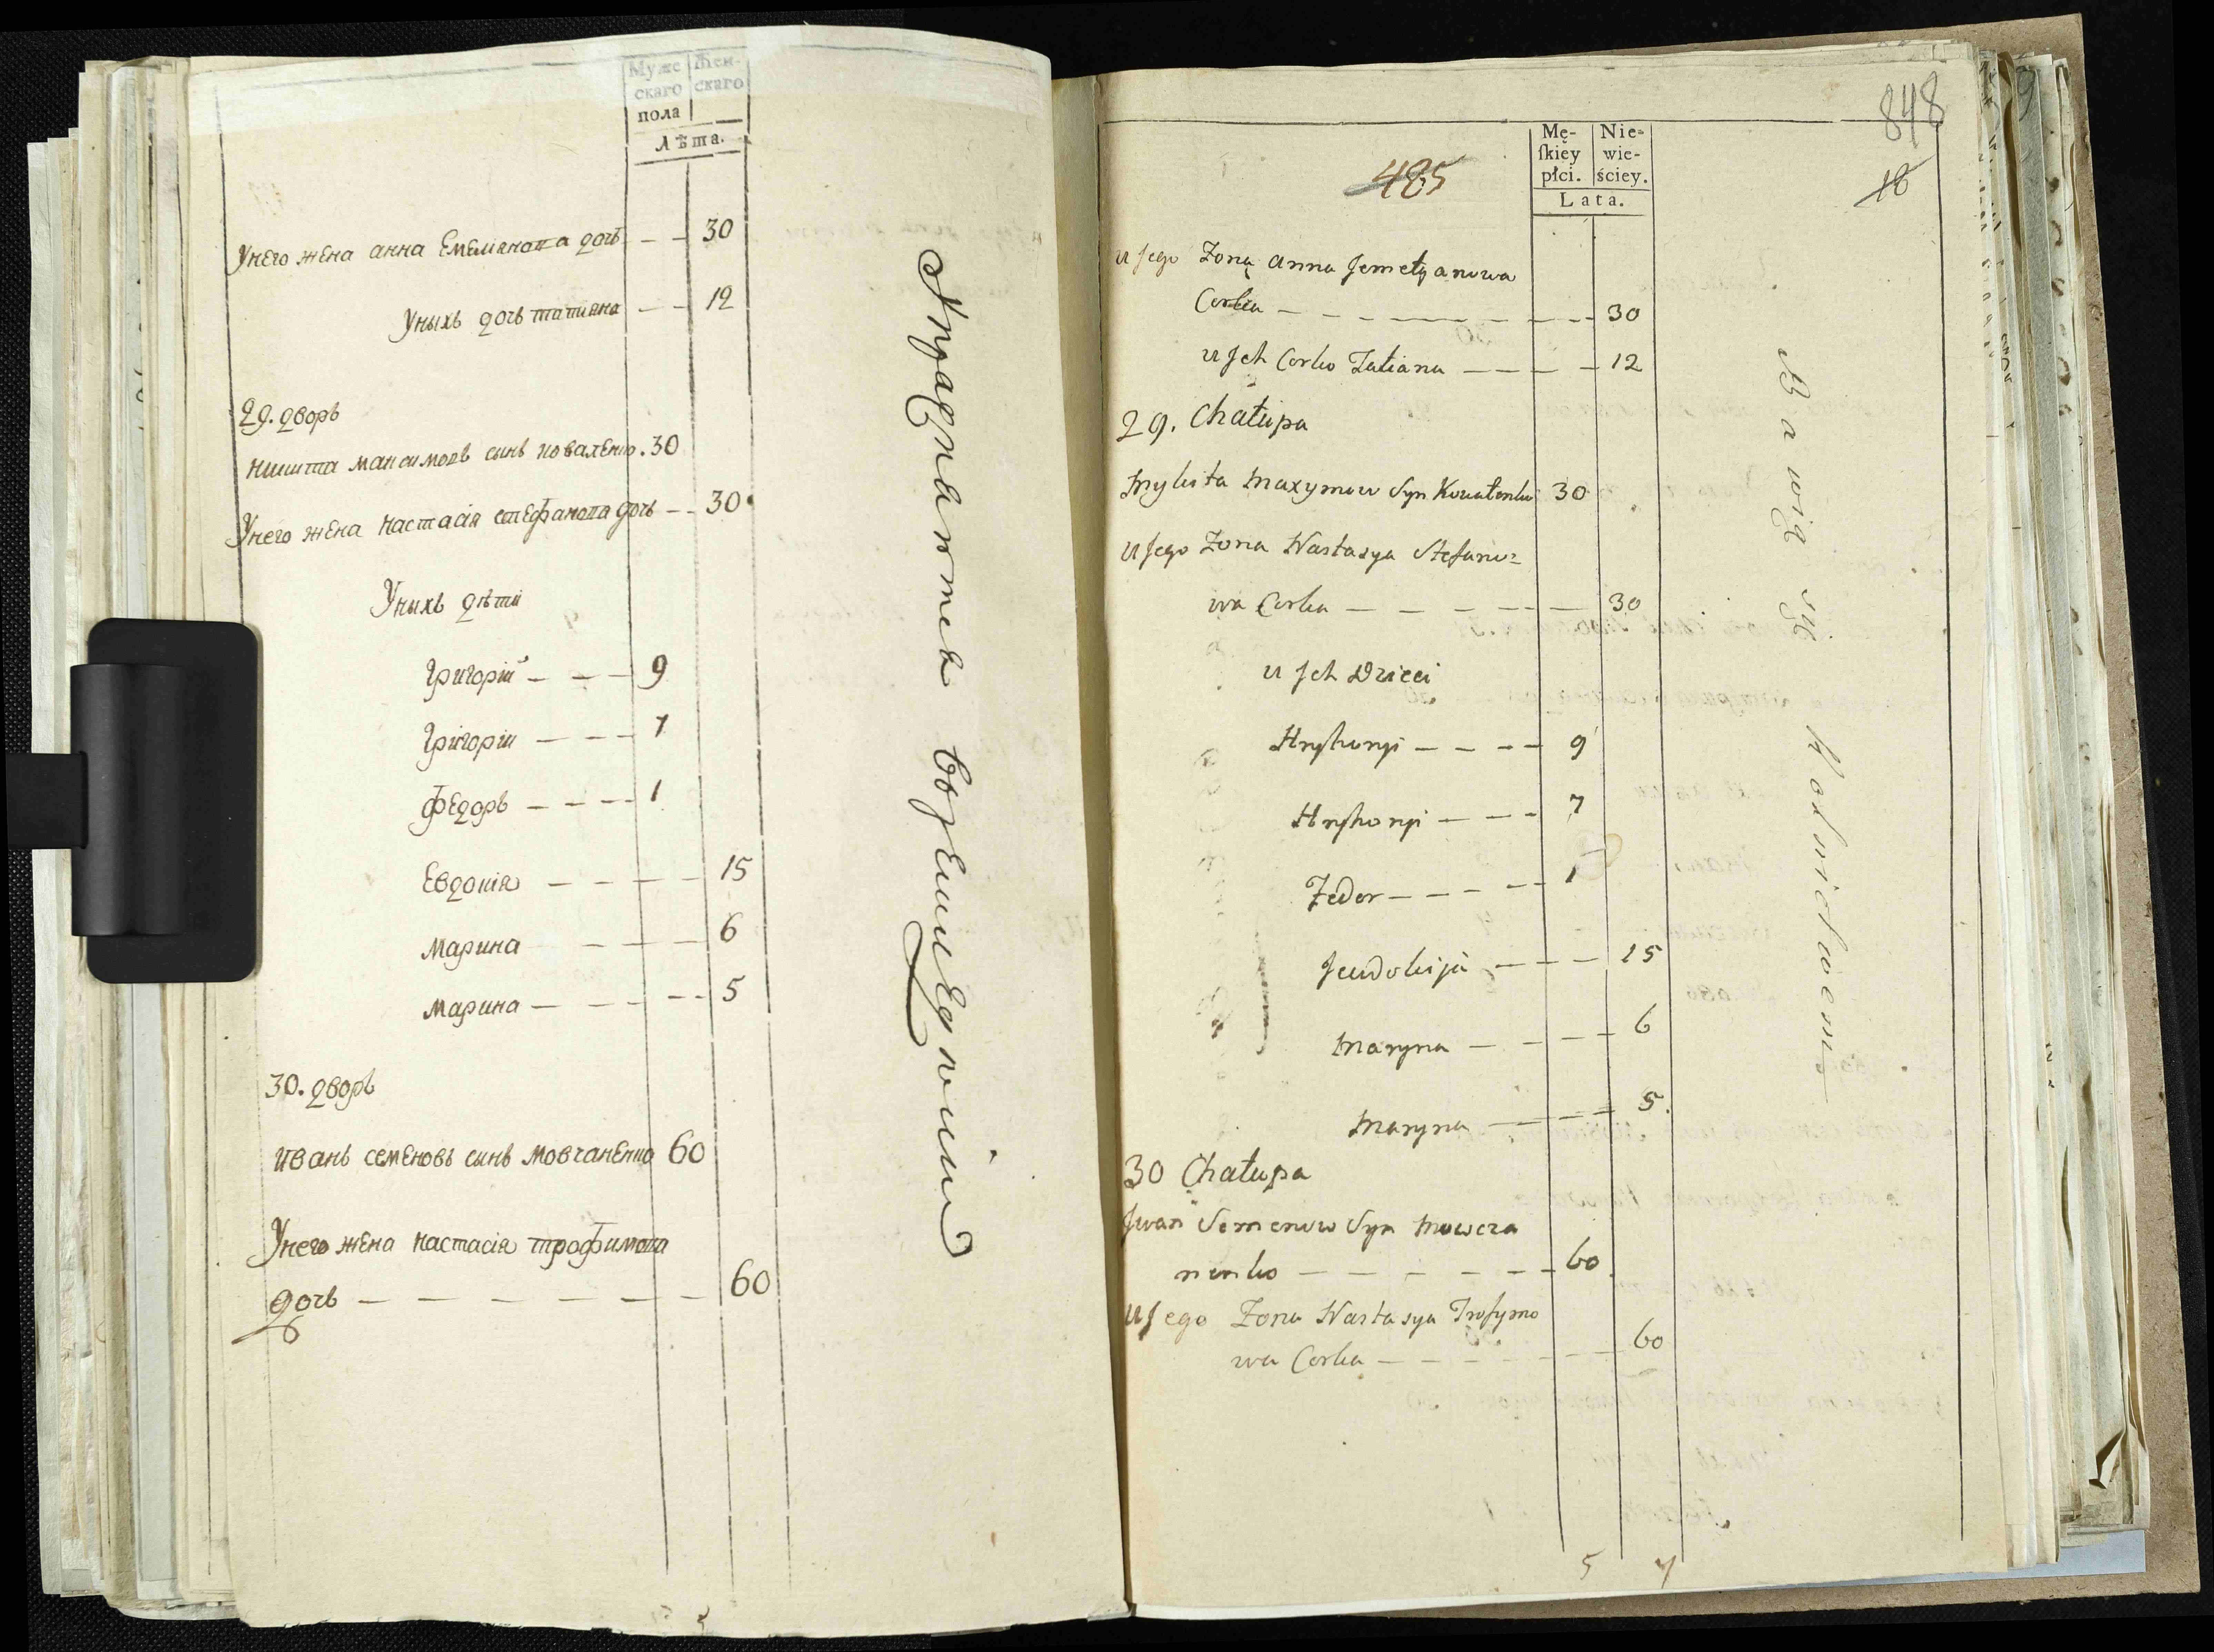 Муже
скаго
пола
Жен-
скаго
Лѣта.
Унего жена анна Емелианова дочь — — 30
Уныхъ дочь татиана — — 12
29. дворъ
никита максимовъ сынъ коваленко. 30
Унего жена настасія стефанова дочь — — 30
Уныхъ дѣти
григорій — — — 9
григорій — — — 7
федоръ — — — 1
Евдокія — — — — 15
марина — — 6
марина — — — — 5
30. дворъ
иванъ семеновъ сынъ мовчаненко 60
Унего жена настасія трофимова
дочь — — — — — — 60
848
18
485
Mę-
ſkiey
płci.
Nie-
wie-
ściey.
Lata.
u Jego Zona anna Jemelyanowa
Corka — — — — — — — 30
u Jch Corko Tatiana — — — — 12
29. Chałupa
Mykita Maxymow Syn Kowalenko 30
u Jego Zona Nastasya Stefano=
wa Corka — — — — — — 30
u Jch Dzieci
Hryhoryi — — — — 9
Hryhoryi — — — 7
Fedor — — — — 1
Jewdokija — — — 15
Maryna — — — — 6
Maryna — — — 5.
30 Chałupa
Jwan Semenow Syn Mowcza
nenko — — — — — — 60
u Jego Zona Nastasya Trofymo
wa Corka — — — — — — 60
Bawią się
5 7